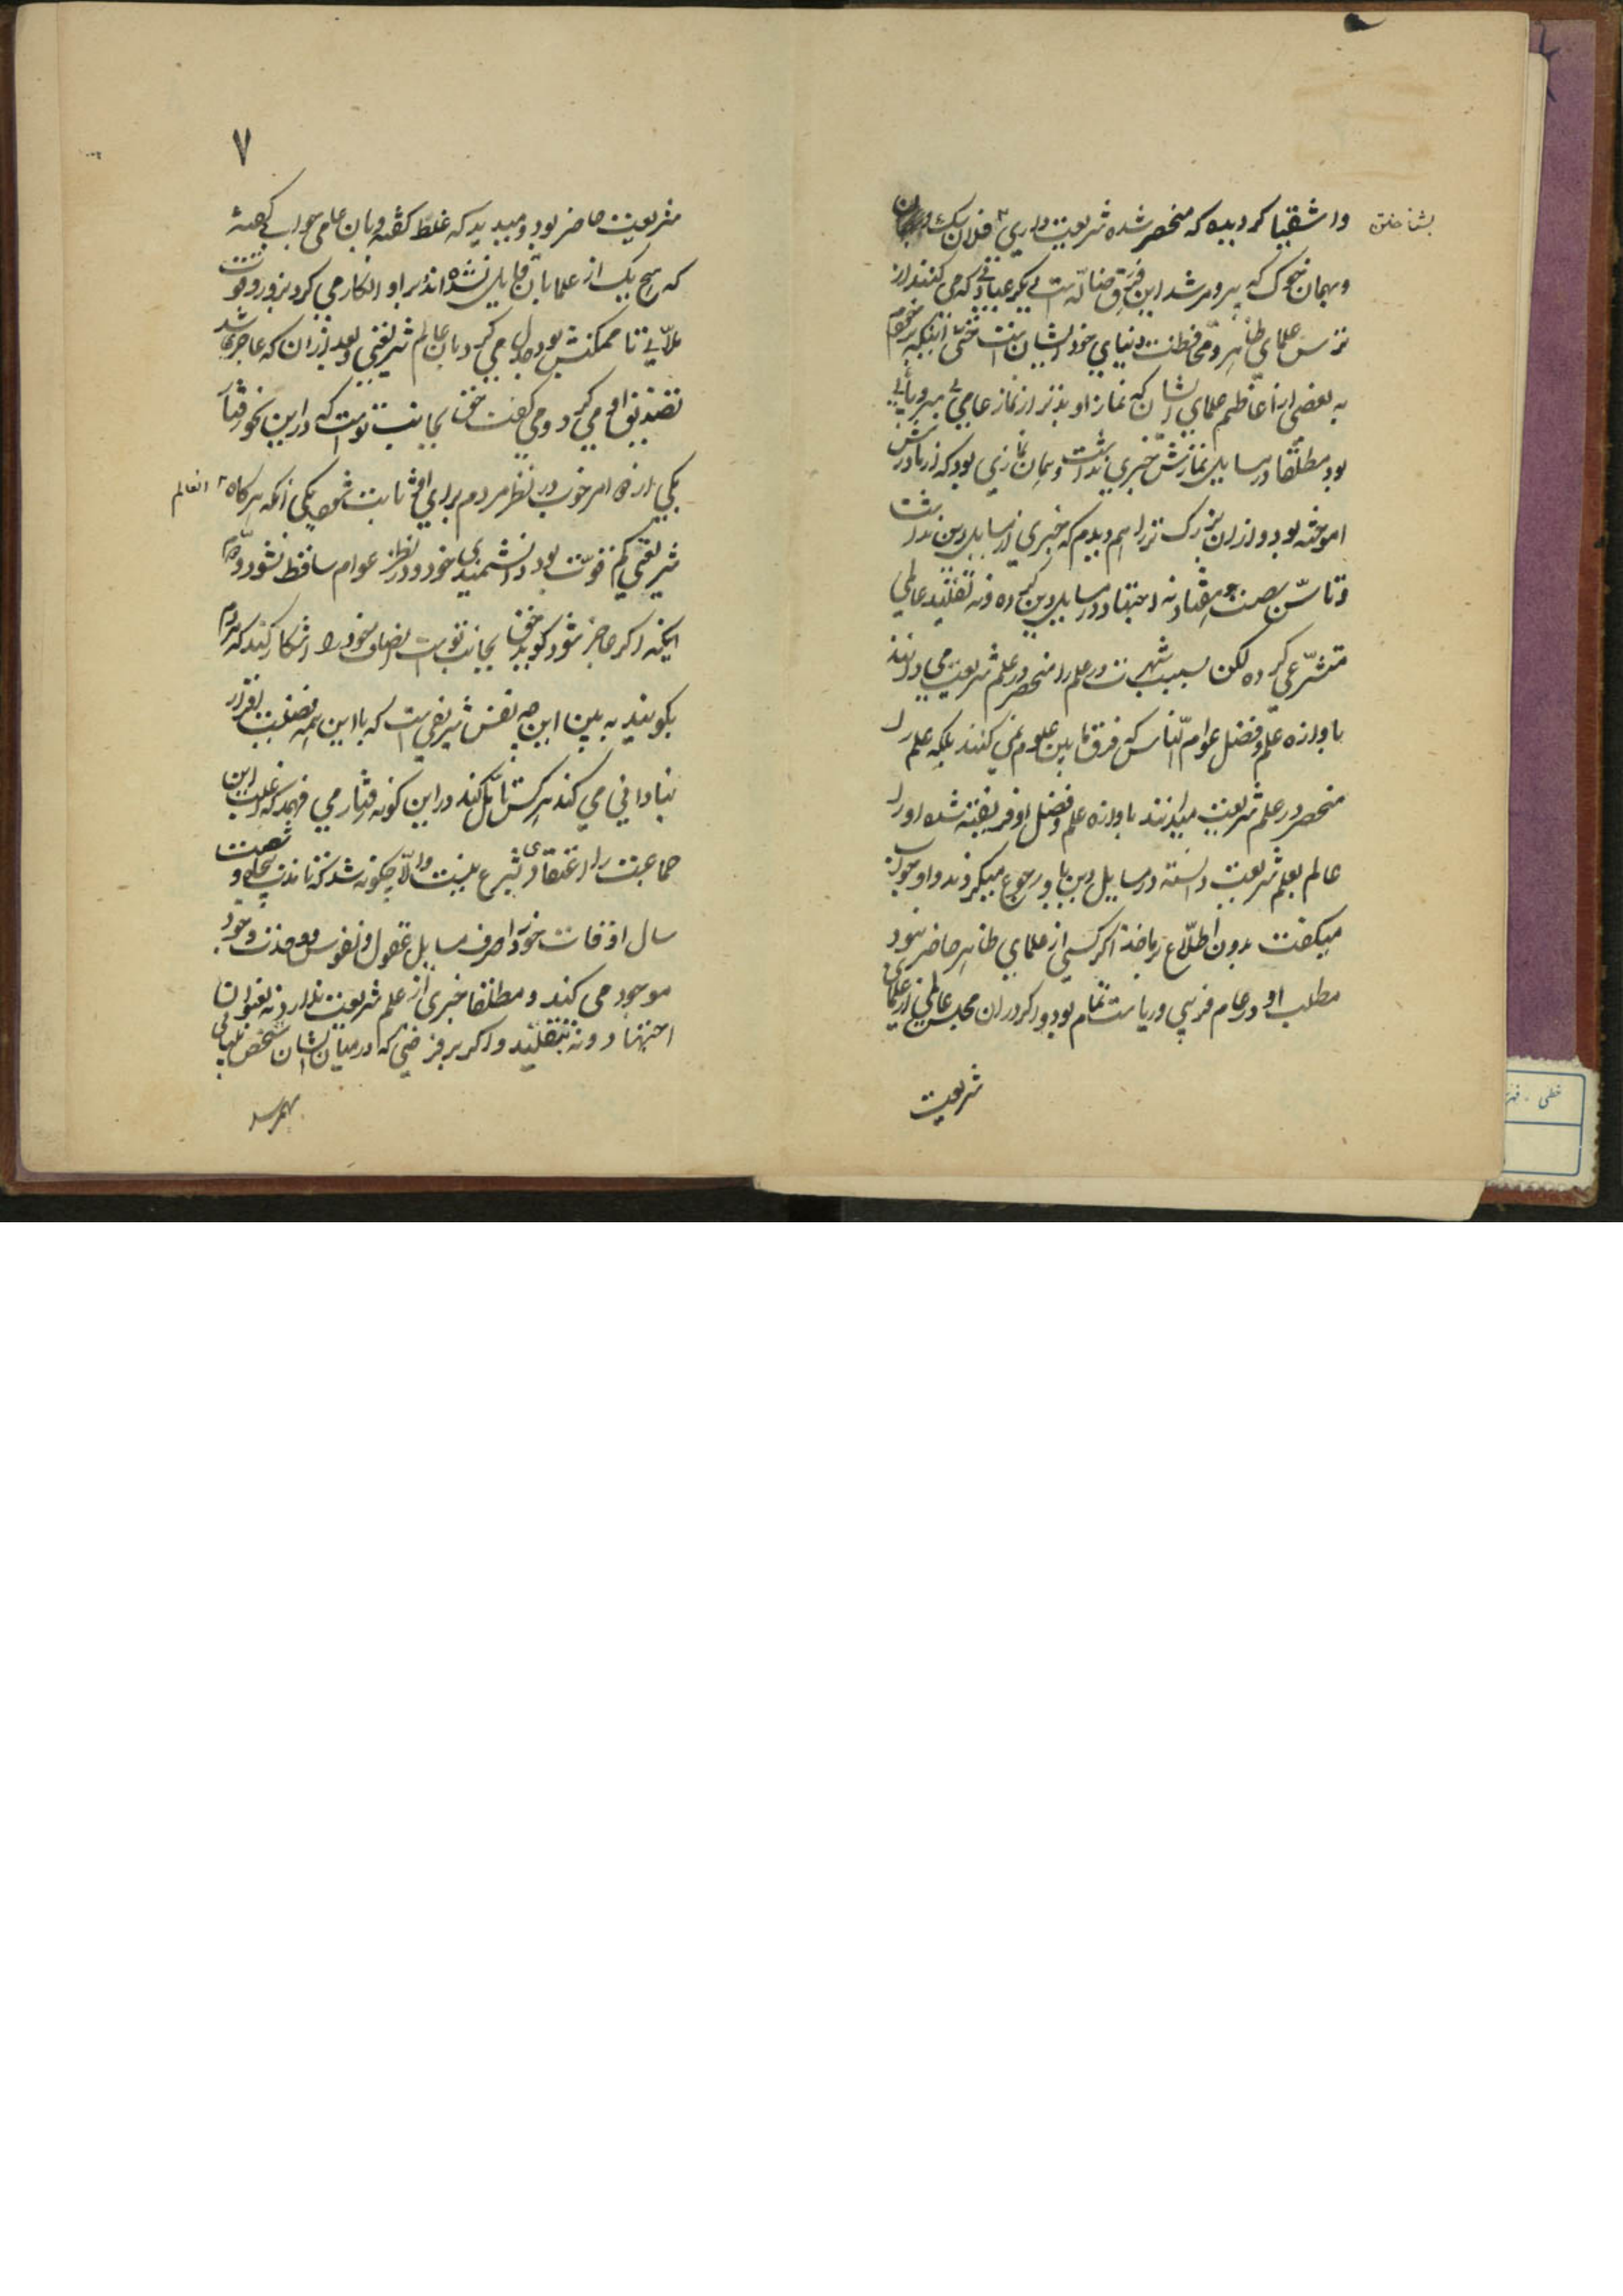 واشقیا کردیده که منحصر شده شریعت داری فلان یک
بشناختن
وبهمان خوک که پیر ومرشد این فرق ضاله است دیگر عباداتی که می کنند از
ترس علمای ظاهر ومحافظت دنیای خود ایشان است حتی اینکه برخوردم
به بعضی از اعاظم علمای ایشان که نماز او بدتر از نماز عامی
بود مطلقا در مسایل نمازش خبری نداشت وهمان نمازی بود که از مادرش
اموخته بود واز ان بزرک تر را هم دیدم که خبری از مسایل دین نداشت
وتا سن شصت وهفتاد نه اجتهاد در مسایل دین کرده ونه تقلید عالمی
متشرعی کرده لکن بسبب شهرت در علم را منحصر در علم شریعت می دانند
باوازه علم وفضل عوام الناس که فرق مابین علوم نمی کنند بلکه علم را
منحصر در علم شریعت میدانند باوازه علم وفضل او فریفته شده او را
عالم بعلم شریعت دانسته در مسایل دین باو رجوع میکردند واو جواب
میکفت بدون اطلاع وماخذ اکر کسی از علمای ظاهر حاضر نبود
مطلب او در عام فریبی وریاست تمام بود واکر در ان مجلس عالمی از علمای
شریعت
۷
شریعت حاضر بود ومیدید که غلط کفته وبان عامی جوابی کفته
که هیچ یک از علما بان قایل نشده اند بر او انکار می کرد بزور وقوت
ملایی تا ممکنش بود جدل می کرد بان عالم شریعتی وبعد از ان که عاجز می شد
تصدیق او می کرد ومی کفت حق بجانب تو است که در این نحو رفتار
یکی از دو امر خوب در نظر مردم برای او ثابت شود یکی انکه هرکاه
انعالم
شریعتی کم قوت بود دانشمندی خود ودر نظر عوام ساقط نشود ودوم
اینکه اکر عاجز شود کوید حق بجانب تو است انصاف خود را اشکار کند که مردم
بکویند به بین این چه نفس شریفی است که با این همه فضیلت اقرار
بنادانی می کند هرکس تامل کند در این کونه رفتار می فهمد که اغلب این
جماعت را اعتقادی بشرع نیست والا چکونه شد که تا مدت پنجاه وشصت
سال اوقات خود را صرف مسایل عقول ونفوس ووحدت وجود
موجود می کند ومطلقا خبری از علم شریعت ندارد نه بعنوان
اجتهاد ونه بتقلید واکر بر فرضی که در میان ایشان شخص ملایی
بهمرسد
خطی